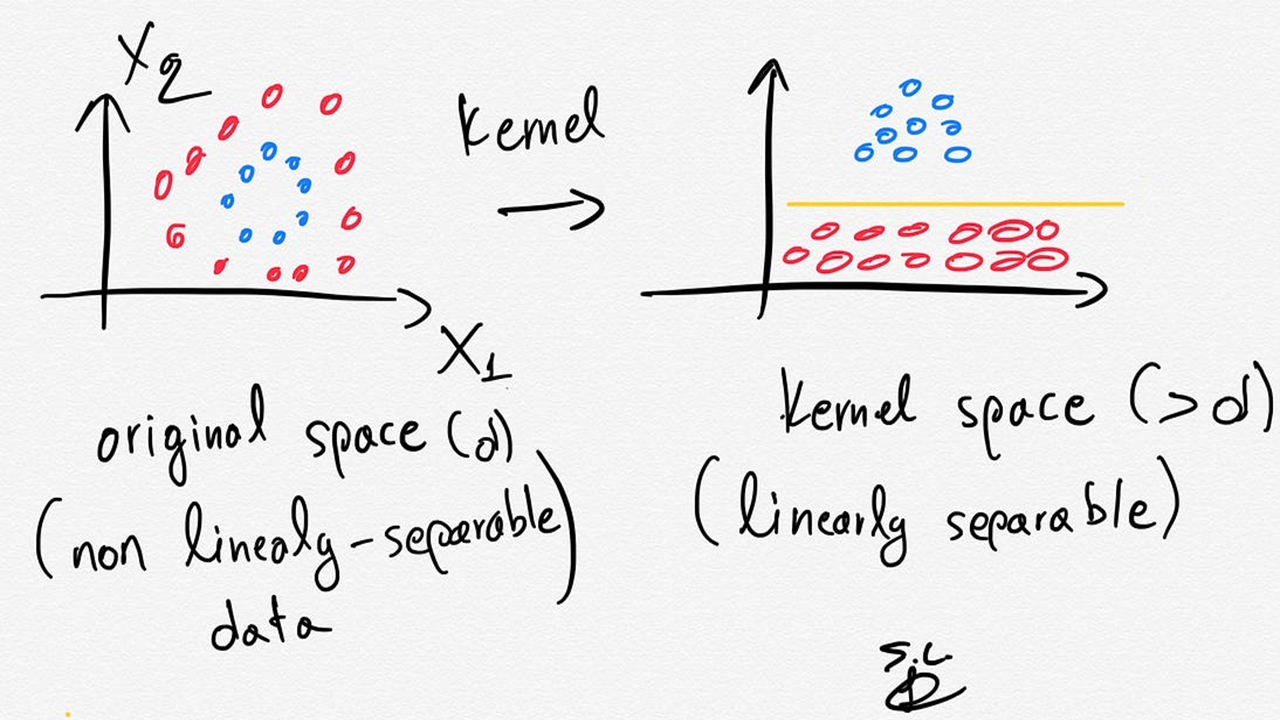 X2
Kernel
X1
original space (d)
(non linealy-separable)
data
Kernel space (>d)
(linearly separable)
S.L.